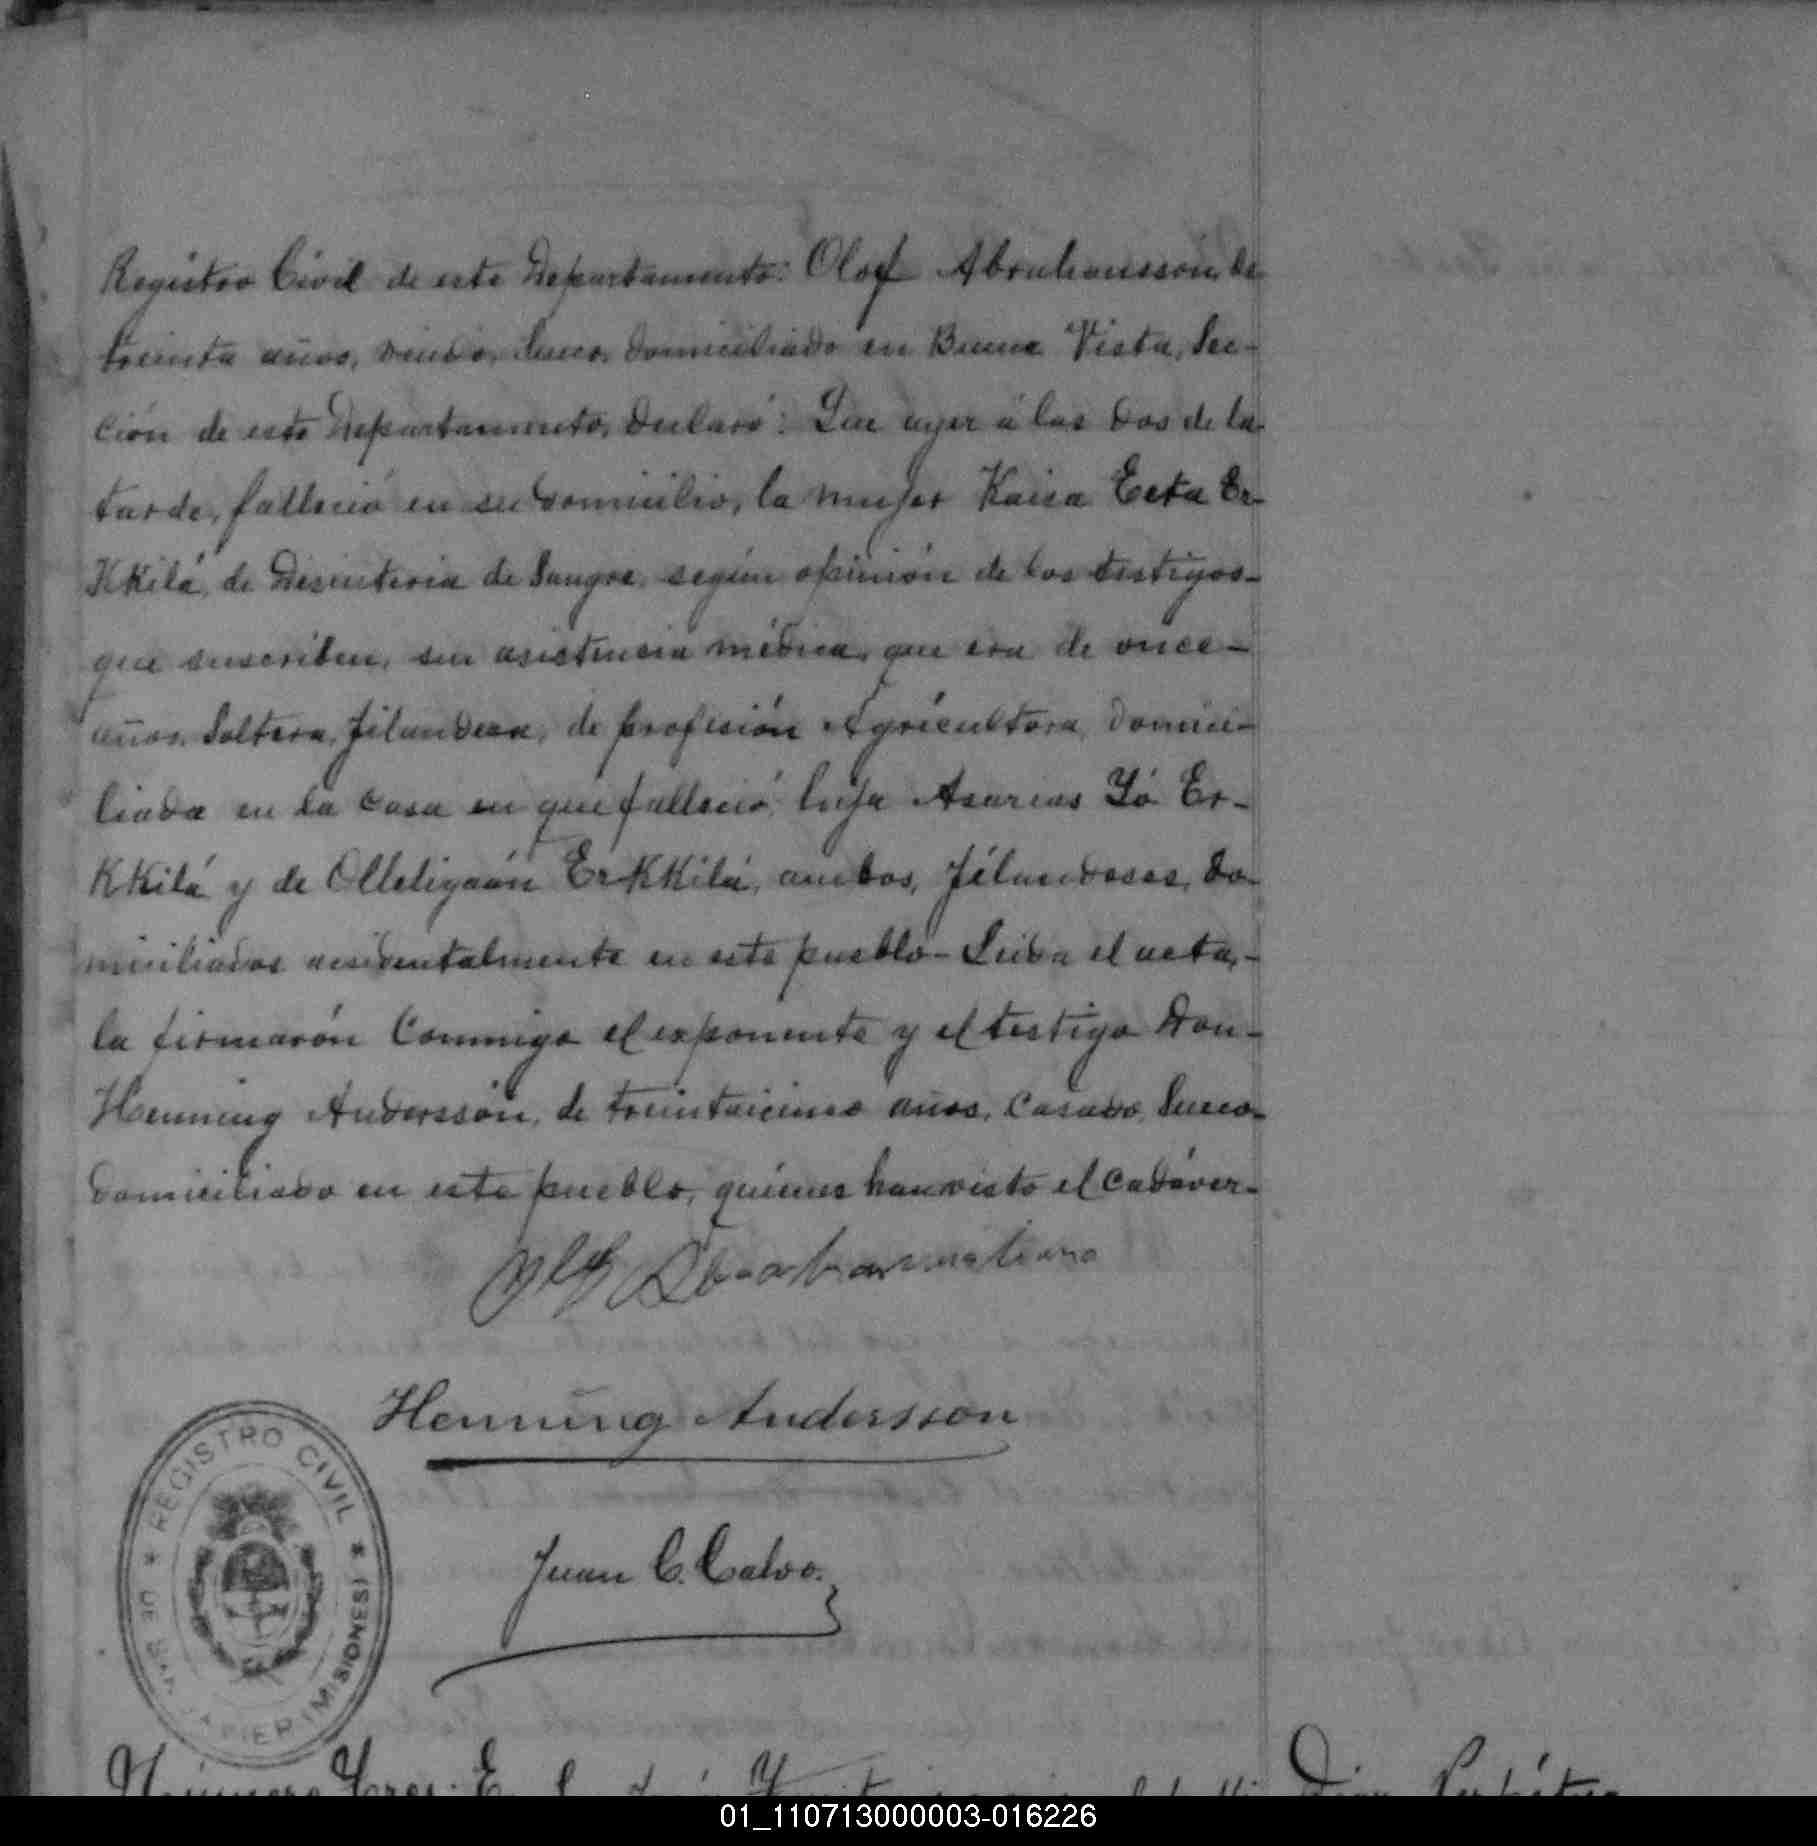 Registro Civil de este Departamento: Olof Abrahansson, de
treinta años, viudo, Sueco, domiciliado en Buena Vista, Sec-
ción de este Departamento, declaró: Que ayer á las dos de la
tarde, falleció en su domicilio, la mujer Kaisa Eeta Er-
KKilá, de Desinteria de Sangre, según opinión de los testigos-
que suscriben, sin asistencia médica, que era de once-
años, Soltera, filandesa, de profesión Agricultora, domici-
liada en la casa en que falleció, hija Asarias Yó Er-
KKilá y de Olleligaán ErKKilá, ambos, filandeses, do-
miciliados accidentalmente en este pueblo- Leida el acta,-
la firmarón Conmigo el exponente y el testigo Don-
Henning Andersson, de treintaicinco años, Casado, Sueco-
domiciliado en este pueblo, quiénes han visto el cadáver-
Henning Andersson
REGISTRO CIVIL
DE SAN JAVIER (MISIONES)
Juan C. Calvo.
Número Tres: En
01_110713000003-016226